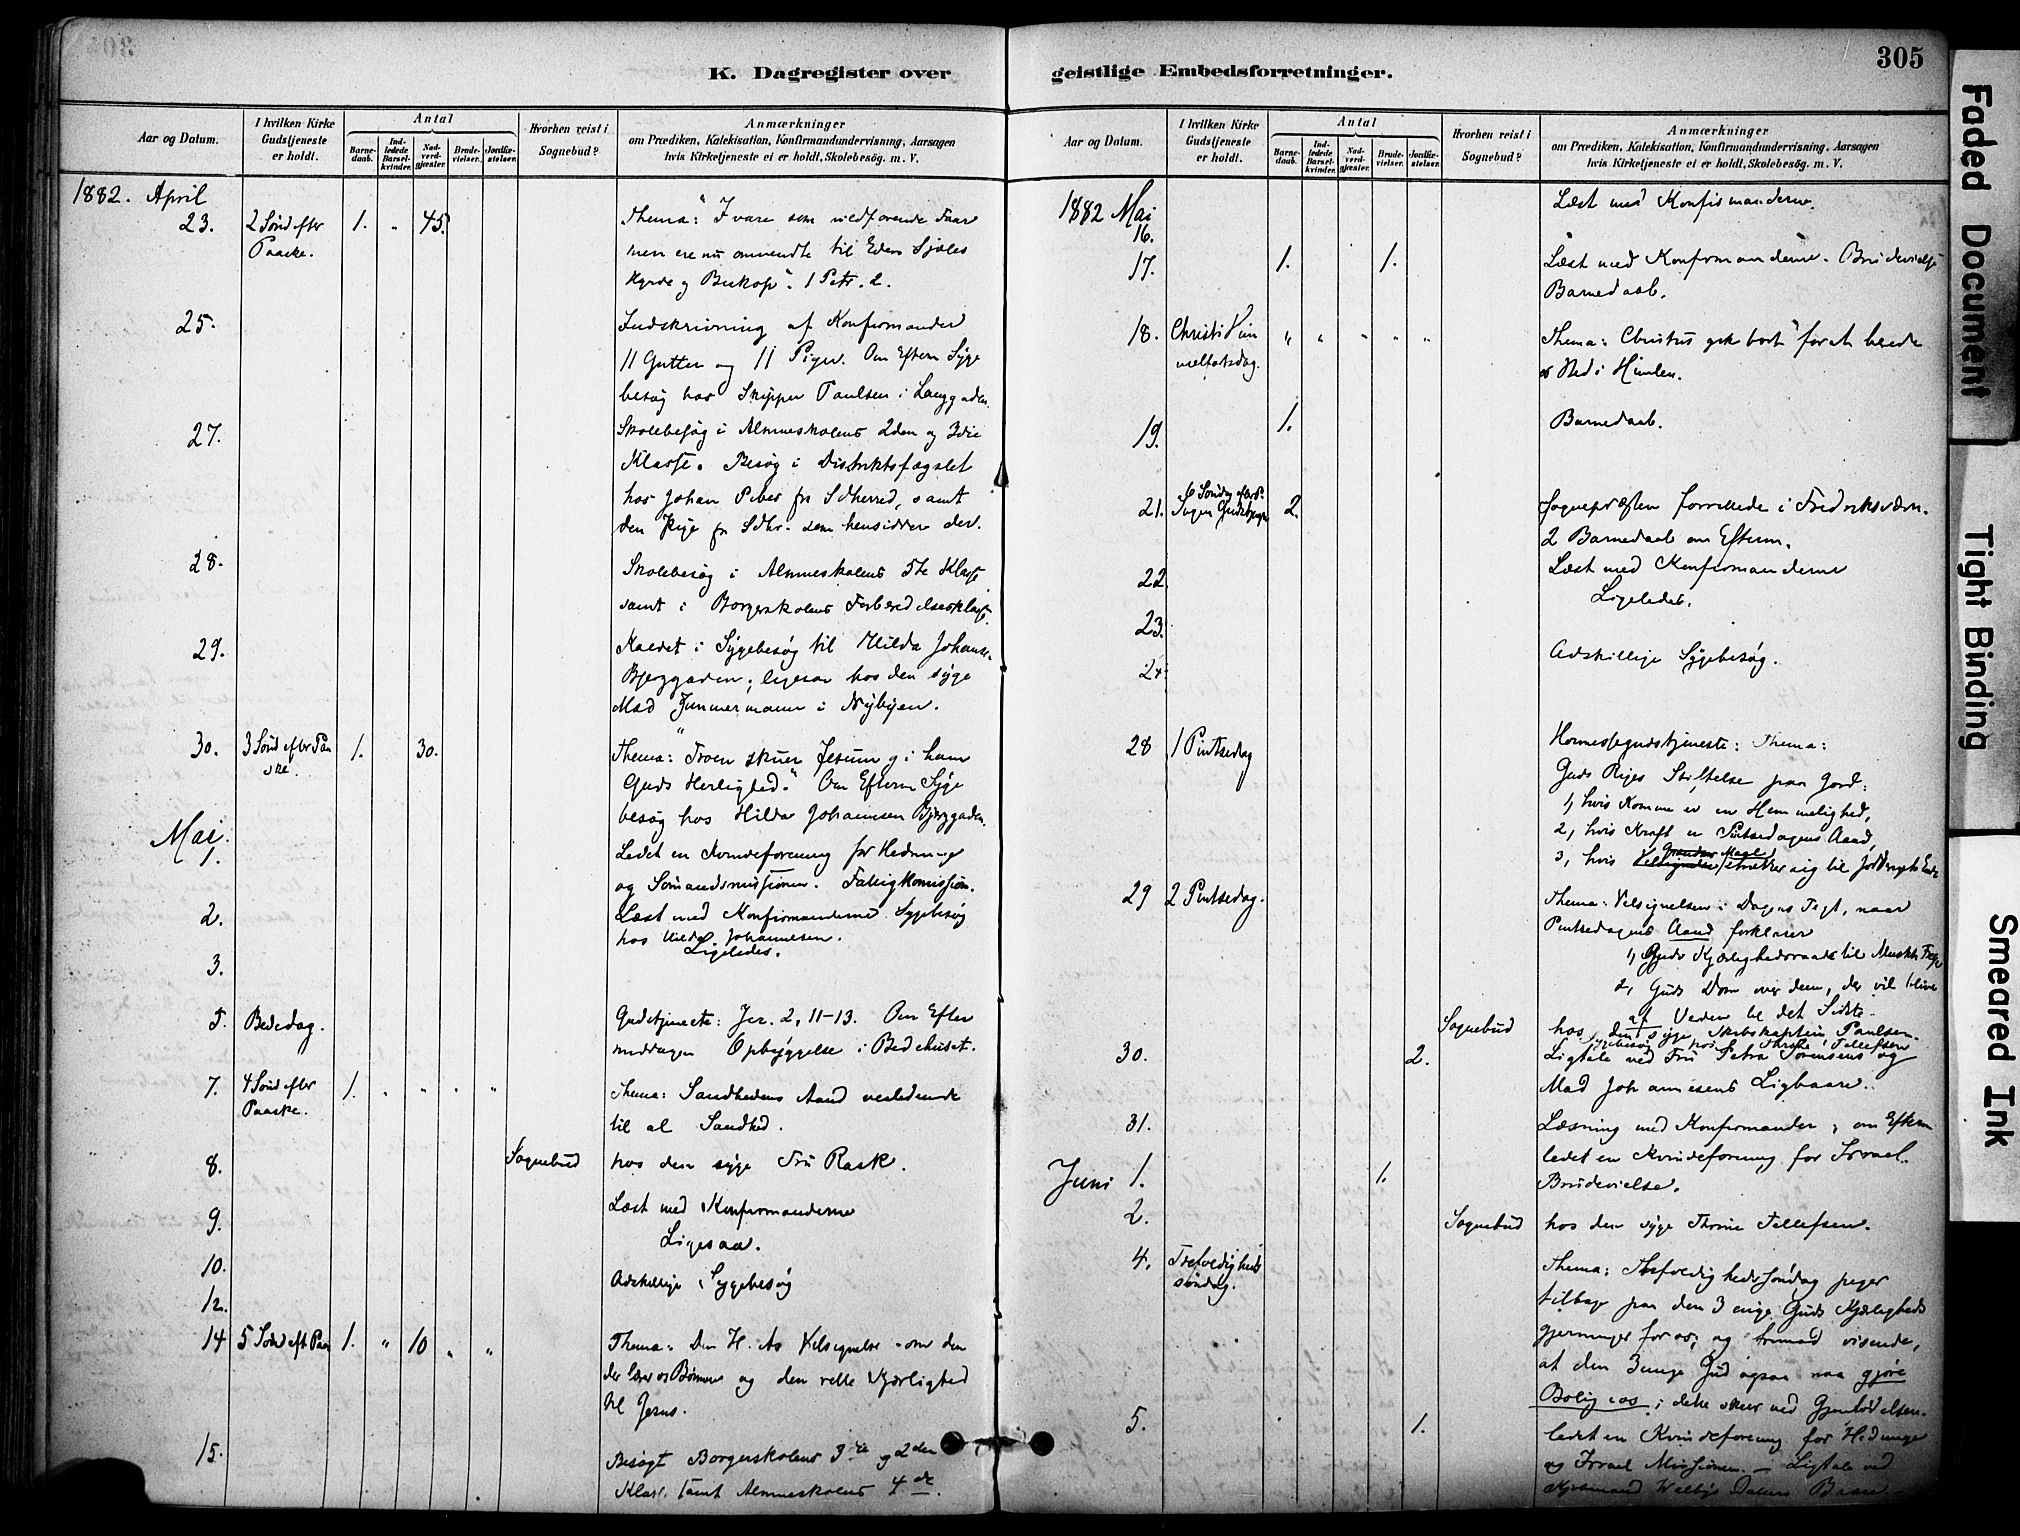 305
K. Dagregister over
Aar og Datum.
I hvilken Kirke Gudstjeneste er holdt.
Antal
Barnedaab.
Indledede Barselkvinder.
Nadverdgjæster.
Brudevielser.
Jordfæstelser.
Hvorhen reist i Sognebud?
Anmærkninger
om Prædiken, Katekisation, Konfirmandundervisning, Aarsagen
hvis Kirketjeneste ei er holdt, Skolebesøg. m. V.
1882. April
23. 2 Sønd efter 1. " 45. Thema: "I vare som vildfarende Faar
Paaske. men ere nu omvendte til Eders Sjæles
Hyrde og Biskop". 1 Petr. 2.
25. Indskrivning af Konfirmander
11 Gutter og 11 Piger. Om Efterm Syge
besøg hos Skipper Paulsen i Langgaden.
27. Skolebesøg i Almueskolens 2den og 3die
Klasse. Besøg i Distriktsfægslet
hos Johan fra Sdherred, samt
den Pige fr Sdhr. som hensidder der.
28. Skolebesøg i Almueskolens 5te Klasse
samt i Borgerskolens Forberedelsesklasse.
29. Kaldet i Sygebesøg til Hilda Johanns.
Bjerggaden; ligesaa hos den syge
Mad Zimmermann i Nybyen.
30. 3 Sønd efter Paa 1. 30. Thema: "Troen skuer Jesum og i ham
ske. Guds Herlighed." Om Efterm Syge
besøg hos Hilda Johannsen Bjerggaden.
Mai.
1. Ledet en Kvindeforening for Hedninge
og Sømandsmissionen. Fattigkomission.
2. Læst med Konfirmanderne Sygebesøg
hos Hilda Johannesen.
3. Ligeledes.
5. Bededag. Gudstjeneste: Jer. 2, 11-13. Om Efter
middagen Opbyggelse i Bedehuset.
7. 4 Sønd efter 1. " " " " Thema: Sandhedens Aand veiledende
Paaske. til al Sandhed.
8. Sognebud hos den syge Fru Rask.
9. Læst med Konfirmanderne
10. Ligesaa.
12. Adskillige Sygebesøg
14 5 Sønd eft Paa 1. " 10 " " Thema: Den H. As Velsignelse om den
der lærer os Bønnen og den rette Kjærlighed
til Jesus.
15. Besøgt Borgerskolens 3die og 2den
Klass. samt Almueskolens 4de.
geistlige Embedsforretninger.
Aar og Datum.
I hvilken Kirke Gudstjeneste er holdt.
Antal
Barnedaab.
Indledede Barselkvinder.
Nadverdgjæster.
Brudevielser.
Jordfæstelser.
Hvorhen reist i Sognebud?
Anmærkninger
om Prædiken, Katekisation, Konfirmandundervisning, Aarsagen
hvis Kirketjeneste ei er holdt, Skolebesøg. m. V.
1882 Mai
16. Læst med Konfirmanderne.
17. 1. 1. Læst med Konfirmanderne. Brudevielse
Barnedaab.
18. Christi Him " " " " " Thema: Christus gik bort for at berede
melfartsdag. os Sted i Himlen.
19. 1. Barnedaab.
21. 6 Søndag efter P. 2. Sognepræsten forrettede i Fredriksværn.
Ingen Gudstjeneste 2 Barnedaab om Efterm.
22. Læst med Konfirmanderne
23. Ligeledes.
24. Adskillige Sygebesøg.
28 1 Pintsedag Høimessegudstjeneste: Thema:
Guds Riges Stiftelse paa Jord:
1, hvis Komme er en Hemmelighed,
2, hvis Kraft er Pintsedagens Aand,
3, hvis Grændser Maal strækker sig til Jorderigets Ende
29 2 Pintsedag. Thema: Velsignelsen i Dagens Text, naar
Pintsedagens Aand forklarer
1, Guds Kjærlighedsraad til Menskh. Frelse
2, Guds Dom over dem, der vil blive
af Verden til det Sidste.
Sognebud hos den syge Skibskaptein Paulsen.
Sygebesøg hos Thrine Tellefsen
30. 2. Ligtale ved Fru Petra Sørensens og
Mad Johannesens Ligbaare.
31. Læsning med Konfirmander, om Efterm
ledet en Kvindeforening for Israel.
Juni 1. 1. Brudevielse.
2. Sognebud hos den syge Thrine Tellefsen.
4. Trefoldigheds Thema: Trefoldighedssøndag peger
søndag. tilbage paa den 3 enige Guds Kjærligheds
gjerninger for os, og fremad visende,
at den 3enige Gud ogsaa maa gjøre
Bolig i os; dette sker ved Gjenfødelsen.
5. 1. ledet en Kvindeforening for Hedninge
og Israel Missionen. — Ligtale ved
Kjøbmand Datters Baare.
Faded Document
Tight Binding
Smeared Ink